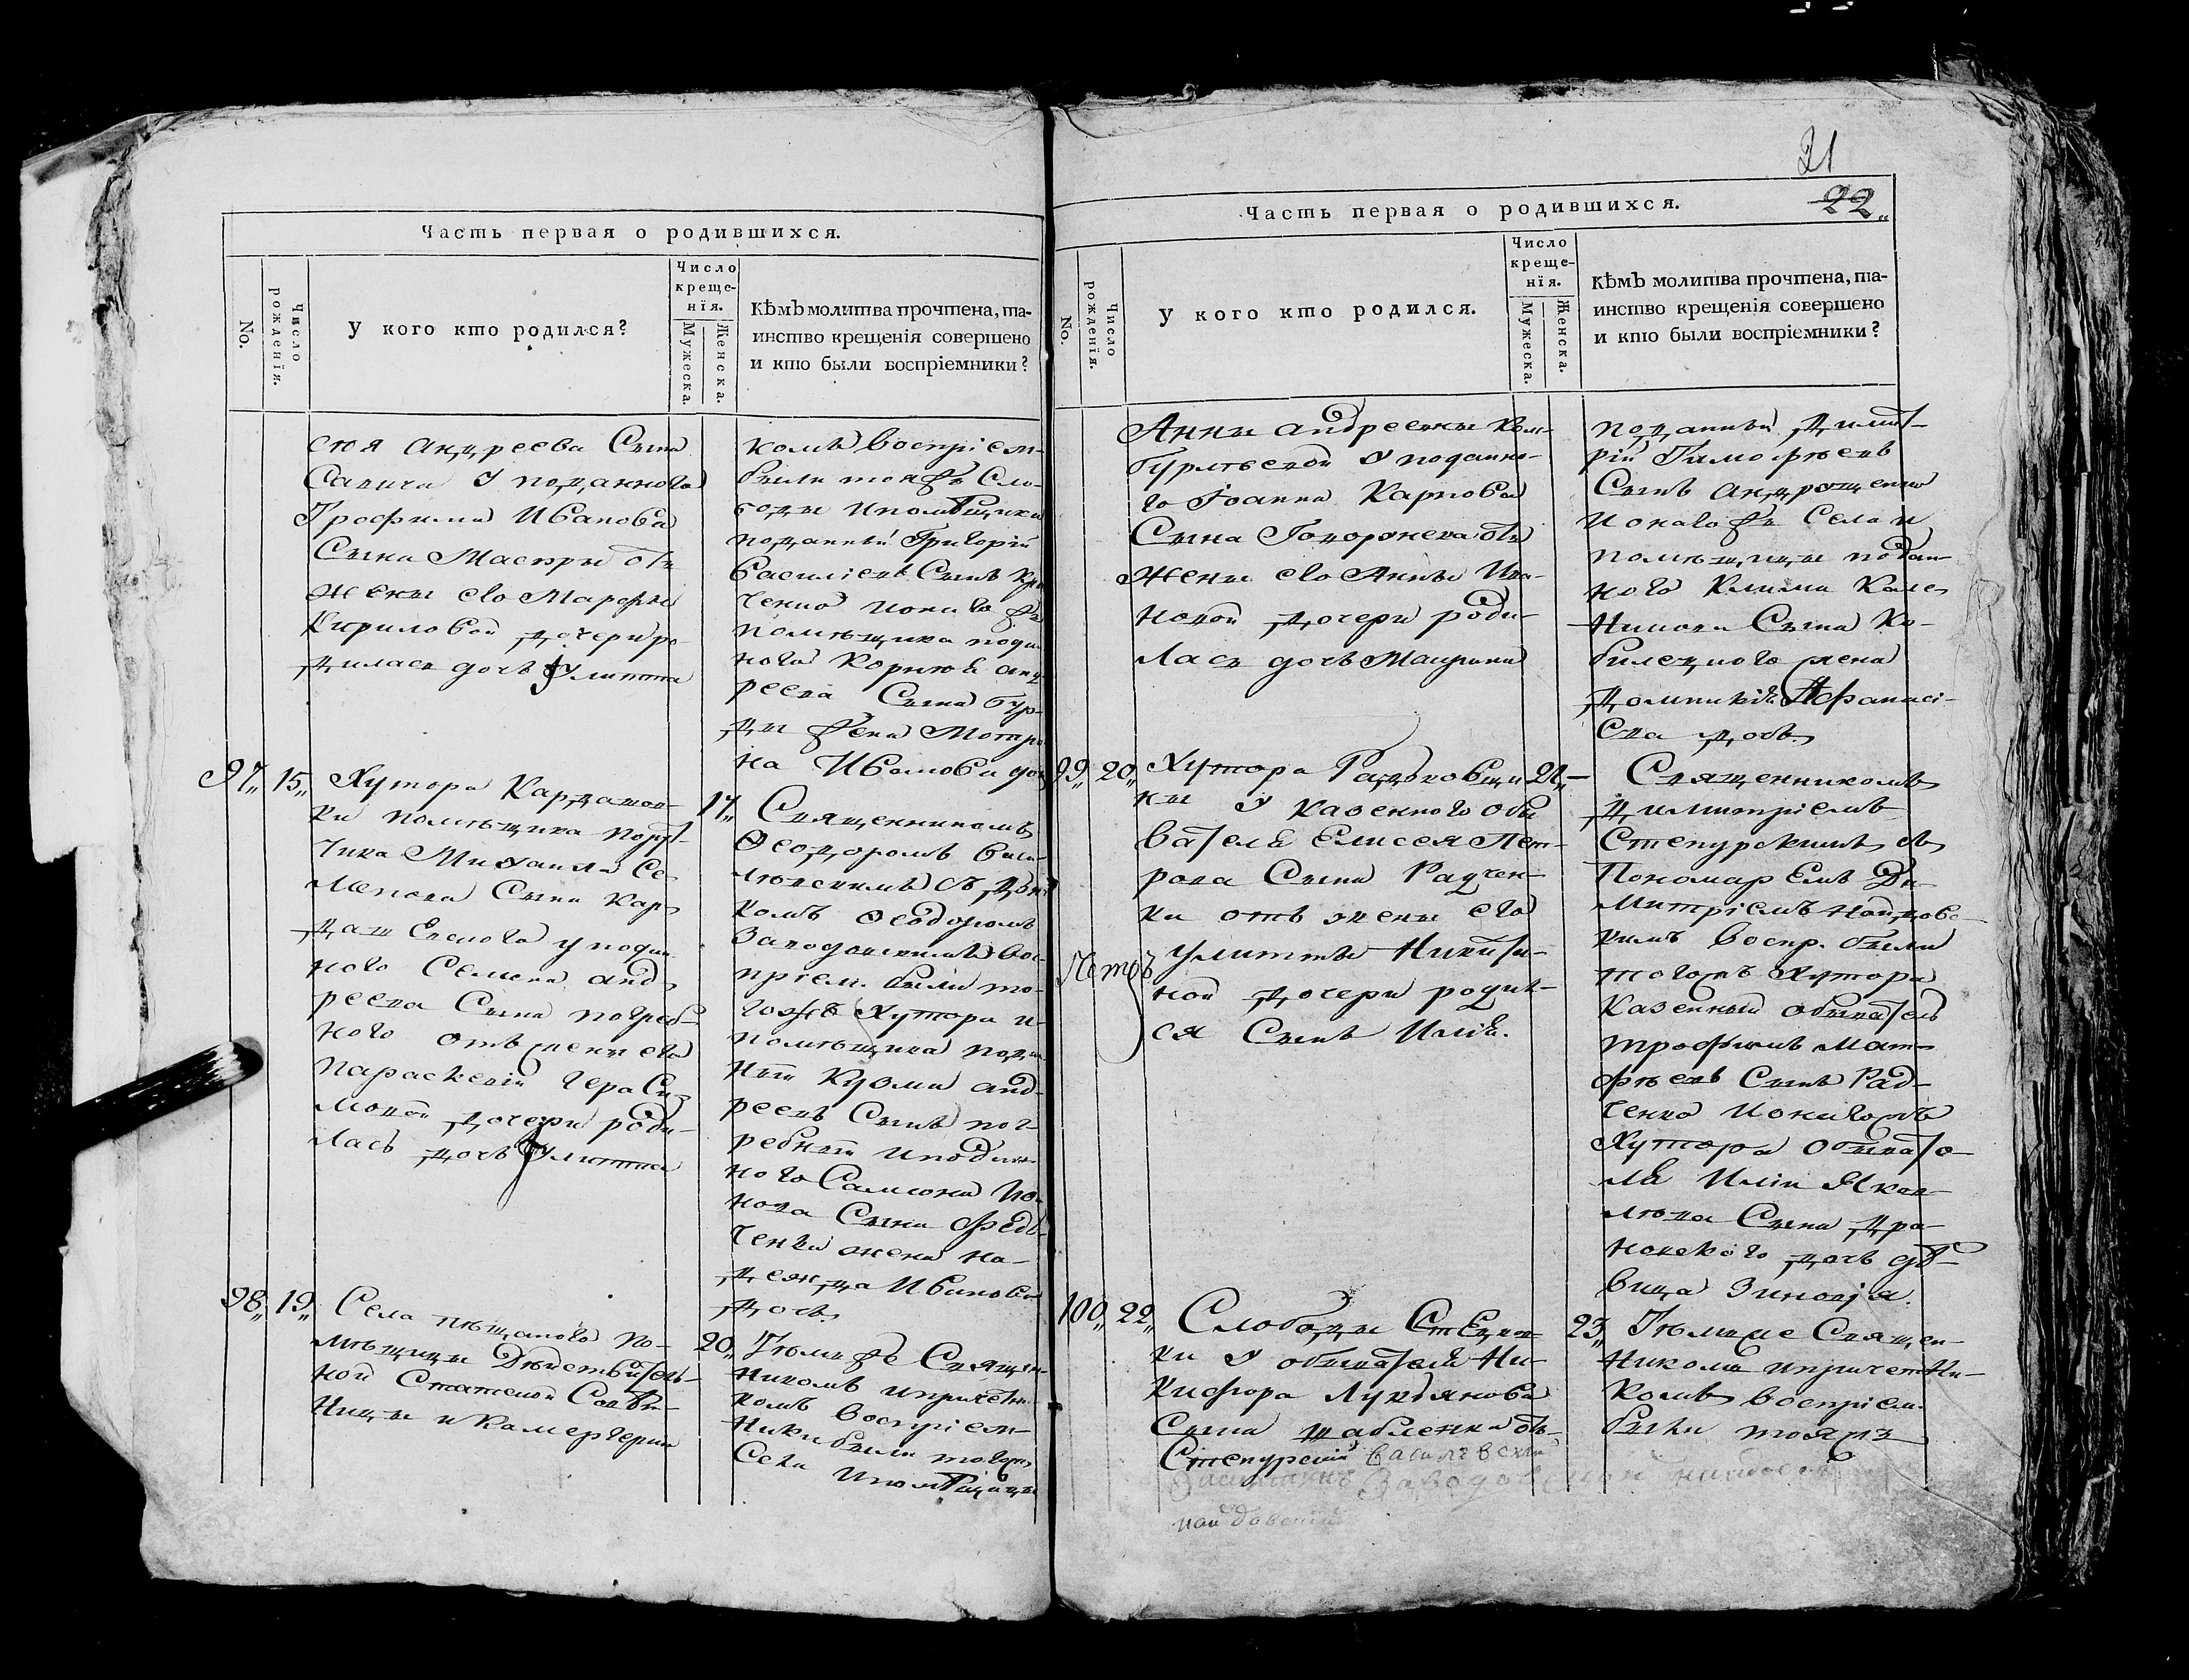 21
22„
Часть первая о родившихся.
No.
Число рожденїя.
У кого кто родился?
Число креще-
нїя.
Мужеска.
Женска.
Кѣмъ молитва прочтена, та-
инство крещенїя совершено
и кто были воспрїемники?
сѣя Андреева Сына
Савича у подданнаго
Трофима Иванова
Сына Мастры отъ
жены его Марфы
Кириловой дочери ро-
дилась дочь Улитта
комъ воспрїем-
были тояжъ Сло-
боды и помѣщика
подданный Григорїй
Василїевъ Сынъ
ченко и онагожъ
помѣщика подда
ного Корнѣя Анд
реева Сына Бур-
ды жена Мотро
на Иванова доч
97„ 15„
Хутора Кардашов-
ки помѣщика порут-
чика Михаила Се-
менова Сына Кар-
дашевского у подан-
ного Семена Анд-
реева Сына погреб-
ного отъ жены его
Параскевїи Гераси-
мовой дочери роди-
лась дочь Улитта
17„
Священникомъ
Феодоромъ Васи-
лѣвскимъ съ Дья
комъ Феодоромъ
Заводовскимъ вос-
прїем. были то-
гожъ Хутора и
помѣщика подан-
ный Кузма Анд-
реевъ Сынъ пог-
ребный и поддан-
ного Самсона
нова Сына Федь
ченка жена На-
дежда Иванова
дочь
98„ 19„
Села Пѣщаного по-
мѣщицы Дѣйствитель-
ной Статской Совѣт-
ницы и Камергерши
20„
Тѣмъ же Священ-
никомъ и причетни-
комъ воспрїем-
ники были тогожъ
Села и помѣщицы
Часть первая о родившихся.
No.
Число рожденїя.
У кого кто родился.
Число креще-
нїя.
Мужеска.
Женска.
Кѣмъ молитва прочтена, та-
инство крещенїя совершено
и кто были воспрїемники?
Анны Андреевны Ком-
бурлѣевой у поданно-
го Іоанна Карпова
Сына Говорокева отъ
жены его Анны Ива-
новой дочери роди-
лась дочь Маврина
поданный Димит-
рїй Тимофѣевъ
Сынъ Андрющенко
и онагожъ Села и
помѣщицы подан-
ного Клима Кале-
никова Сына Ко-
билецкого жена
Домникїя Афанасї-
ева дочь
99„ 20„
Хутора Радьковщи-
ны у казенного обы
вателя Елисея Пет-
рова Сына Радчен-
ка отъ жены его
Улитты Никити-
ной дочери родил-
ся Сынъ Илїя.
21„
Священникомъ
Димитрїемъ
Степурскимъ съ
Пономаремъ Ди-
митрїемъ Найдовс-
кимъ воспр. были
тогожъ Хутора
Казенный обыватель
Трофимъ Мат-
фѣевъ Сынъ Рад-
ченко и онагожъ
Хутора обывате-
ля Илїи Яков-
лѣва Сына Дра-
новского дочь дѣ-
вица Зиновїя.
100„ 22„
Слободы Стецков-
ки у обывателя Ни-
кифора Лукьянова
Сына Шабленка отъ
23„
Тѣмже Священ-
никомъ и причетни-
комъ воспрїем.
были тояжъ
Степурский Василѣвский
Заводовский
Найдовский